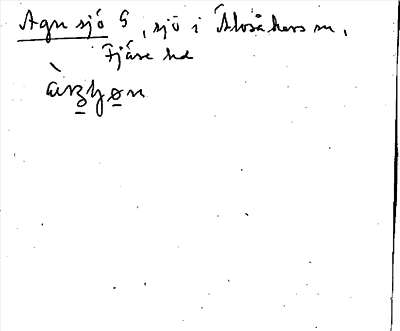 Agnsjö G, sjö i Älvsåkers sn,
Fjäre hd